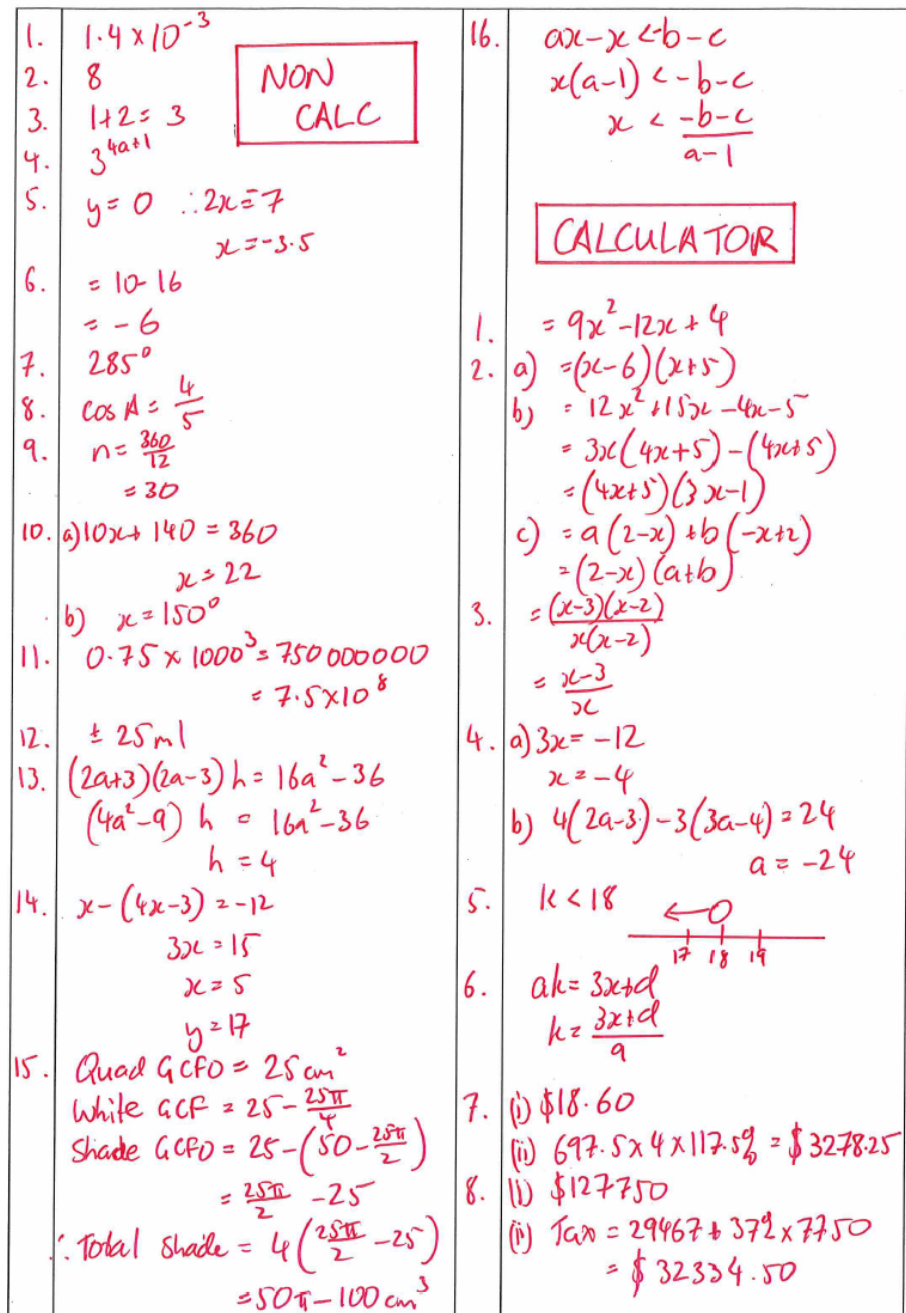 1. 1.4 × 10⁻³
2. 8
NON CALC
3. 1+2 = 3
4. 3⁴ᵃ⁺¹
5. y = 0 ∴ 2x = 7
x = -3.5
6. = 10-16
= -6
7. 285°
8. cos A = 4/5
9. n = 360/12
= 30
10. a) 10x + 140 = 360
x = 22
b) x = 150°
11. 0.75 × 1000³ = 750 000 000
= 7.5 × 10⁸
12. ± 25 ml
13. (2a+3)(2a-3) h = 16a² - 36
(4a² - 9) h = 16a² - 36
h = 4
14. x - (4x-3) = -12
3x = 15
x = 5
y = 17
15. Quad GCFO = 25 cm²
White GCF = 25 - 25π/4
Shade GCFO = 25 - (50 - 25π/2)
= 25π/2 - 25
∴ Total Shade = 4(25π/2 - 25)
= 50π - 100 cm³
16. ax - x < -b - c
x(a-1) < -b - c
x < (-b-c)/(a-1)
CALCULATOR
1. = 9x² - 12x + 4
2. a) = (x-6)(x+5)
b) = 12x² + 15x - 4x - 5
= 3x(4x+5) - (4x+5)
= (4x+5)(3x-1)
c) = a(2-x) + b(-x+2)
= (2-x)(a+b)
3. = (x-3)(x-2)/x(x-2)
= (x-3)/x
4. a) 3x = -12
x = -4
b) 4(2a-3) - 3(3a-4) = 24
a = -24
5. k < 18
17 18 19
6. ak = 3x+d
k = (3x+d)/a
7. (i) $18.60
(ii) 697.5 × 4 × 117.5% = $3278.25
8. (i) $127750
(ii) Tax = 29467 + 37% × 7750
= $32334.50